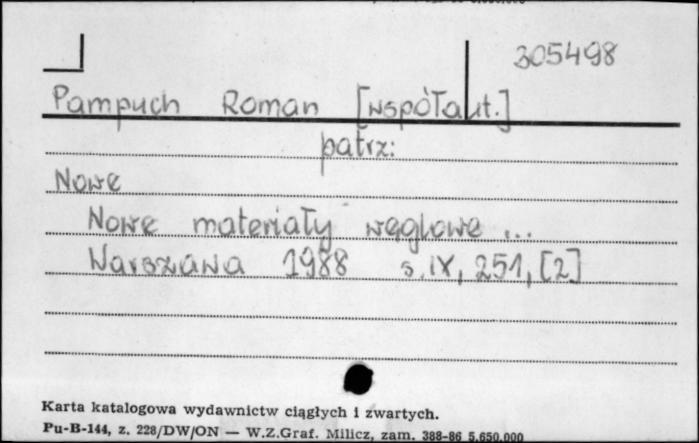 305498
Pampuch Roman [współaut.]
patrz:
Nowe
Nowe materiały węglowe ...
Warszawa 1988 s. IX, 251, [2]
Karta katalogowa wydawnictw ciągłych i zwartych.
Pu-B-144, z. 228/DW/ON — W.Z.Graf. Milicz, zam. 388-86 5.650.000